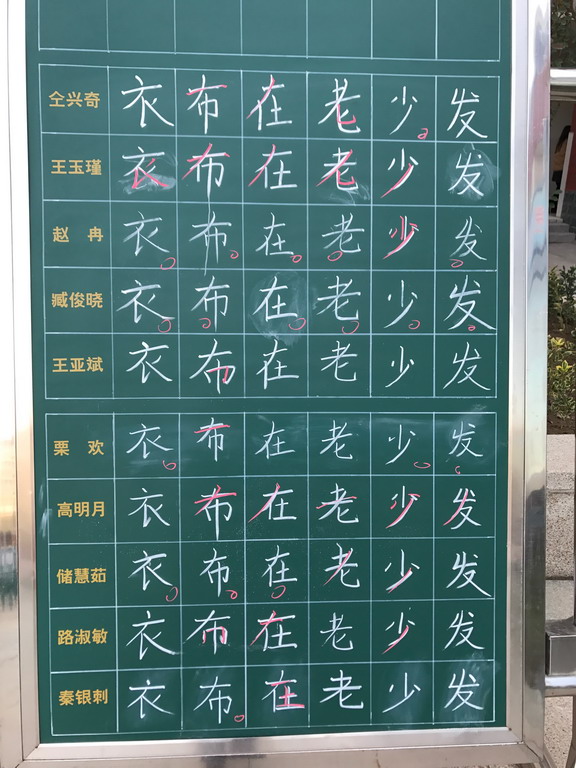 仝兴奇 衣 布 在 老 少 发
王玉瑾 衣 布 在 老 少 发
赵冉 衣 布 在 老 少 发
臧俊晓 衣 布 在 老 少 发
王亚斌 衣 布 在 老 少 发
栗欢 衣 布 在 老 少 发
高明月 衣 布 在 老 少 发
储慧茹 衣 布 在 老 少 发
路淑敏 衣 布 在 老 少 发
秦银刺 衣 布 在 老 少 发